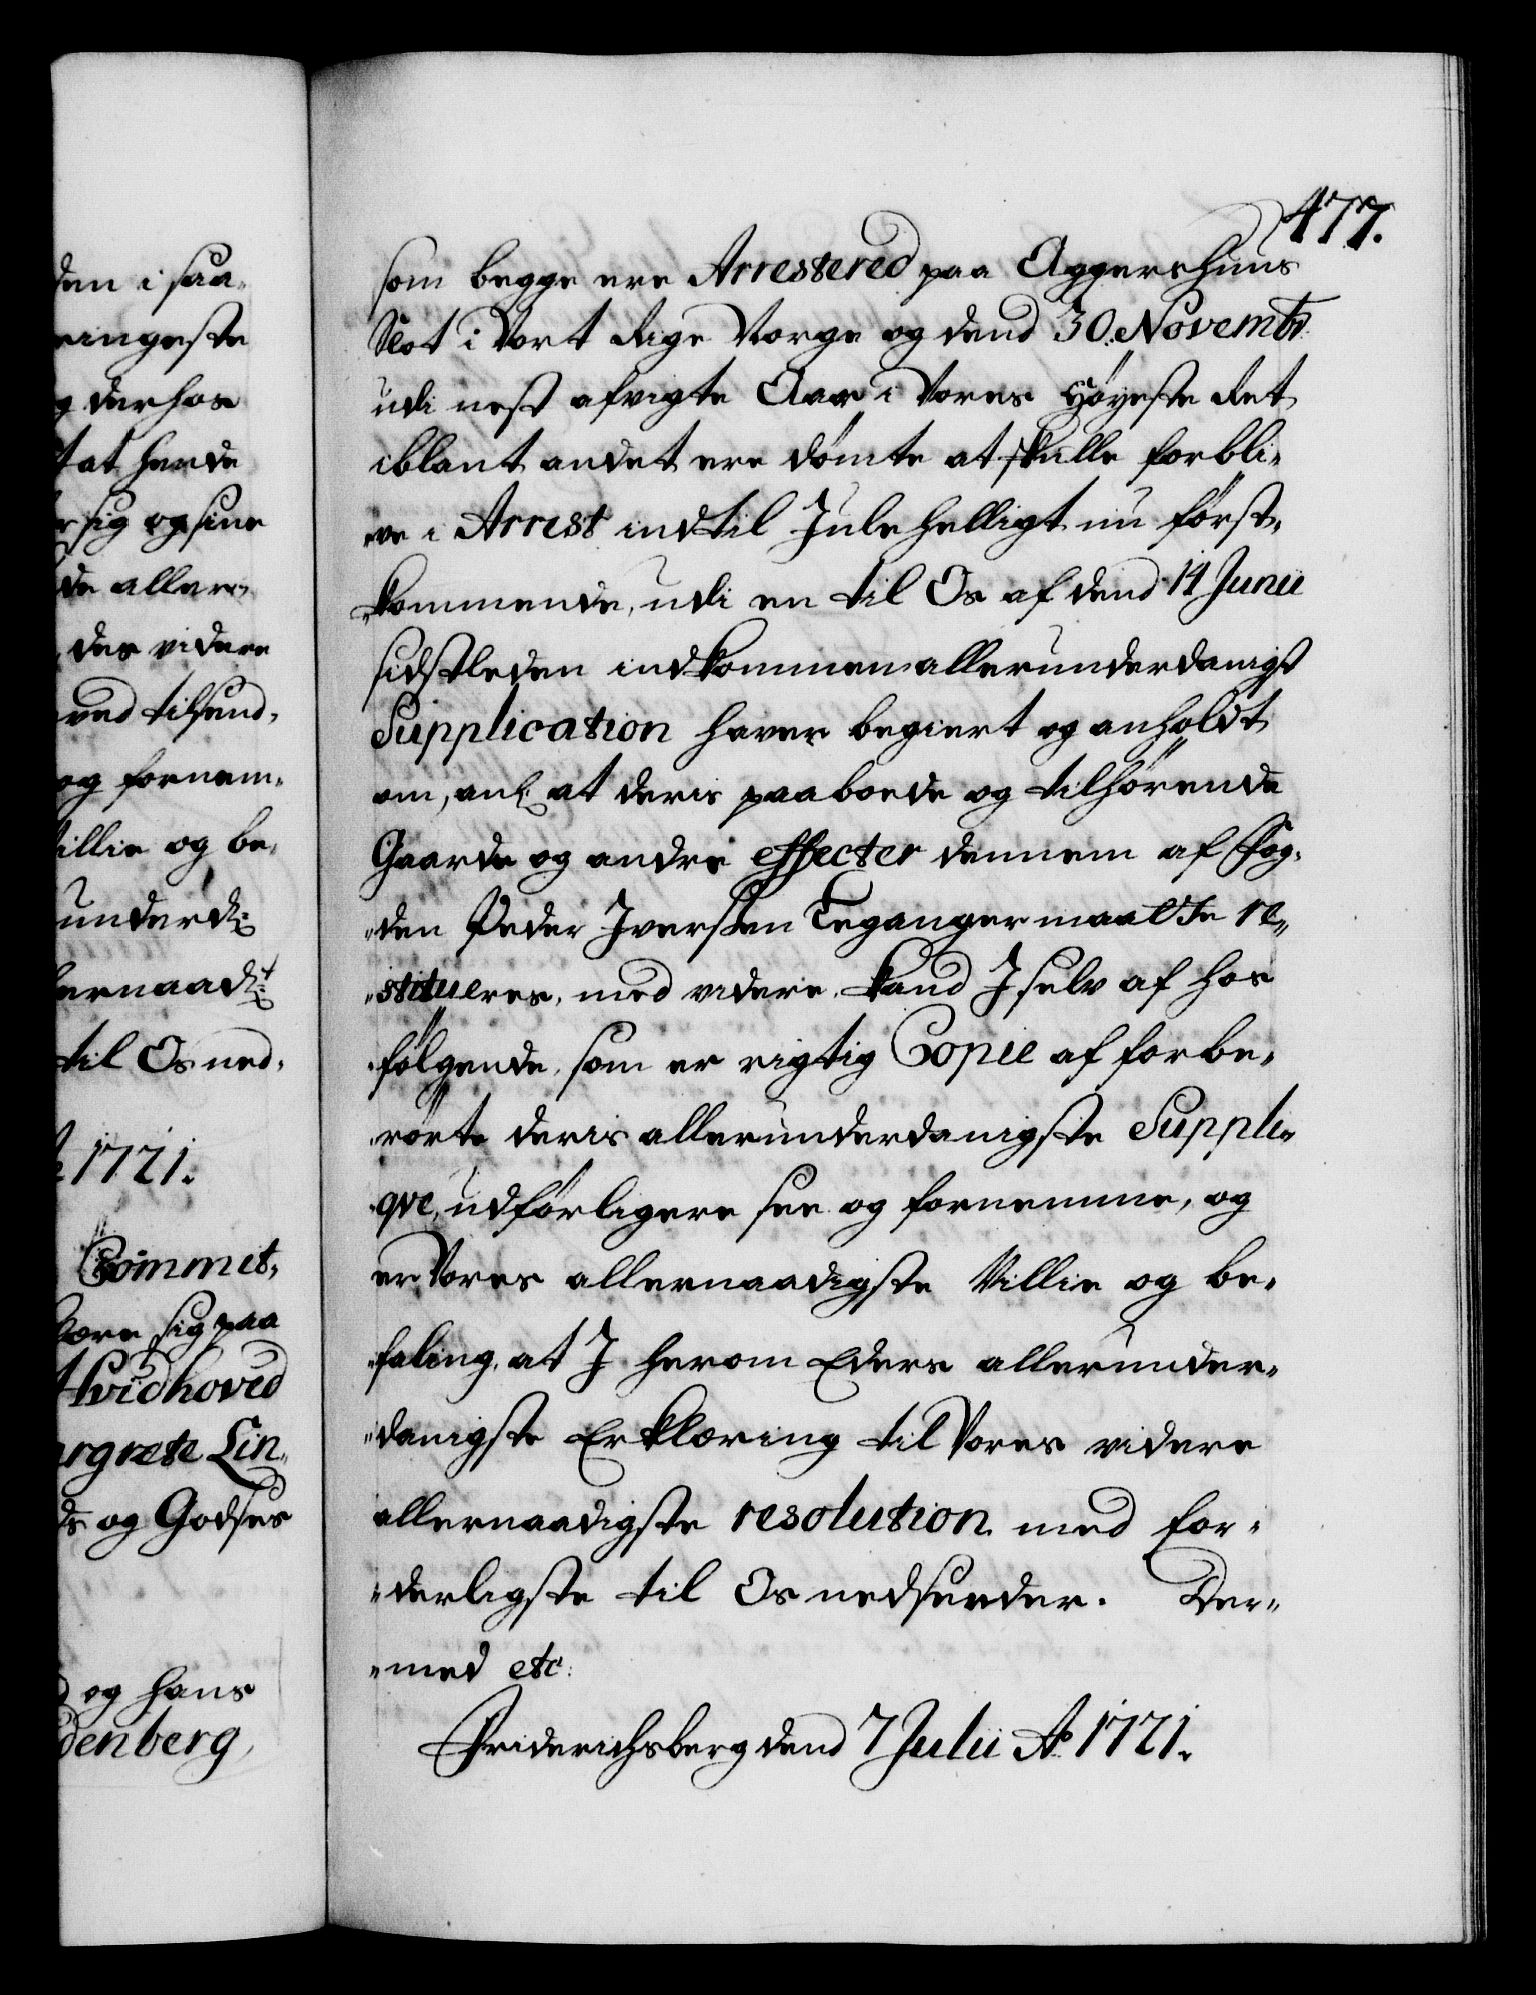 den i saa-
ringeste
g derhos
t at hende
r sig og sine
de aller-
des videre
ved tilsend,
og fornem-
illie og be,
underd:
ernaad:t
til Os ned-
1721.
Commit,
lære sig paa
Hvidhoved
rgrete Lin,
ds og Godses
og hans
denberg,
477.
som begge ere Arrestered paa Aggershuus
Slot i Vort Rige Norge og dend 30. Novembr:
udi nest afvigte Aar i Vores Høyeste Ret
iblant andet ere dømte at skulle forbli-
ve i Arrest indtil Julehelligt nu først-
kommende, udi en til Os af dend 14 Junii
sidstleden indkommen allerunderdanigst
Supplication haver begiert og anholdt
om, anl: at deris paaboede og tilhørende
Gaarde og andre effecter dennem af Fog-
den Peder Iversen Teganger maatte re-
stitueres, med videre, kand I selv af hos
følgende, som er rigtig Copie af forbe-
rørte deris allerunderdanigste Suppli-
qve, udførligere see og fornemme, og
er Vores allernaadigste Villie og be-
faling, at I herom Eders allerunder-
danigste Erklæring til Vores videre
allernaadigste resolution med for-
derligste til Os nedsender. Der-
med etc:
Friderichsberg dend 7 Julii Ao 1721.